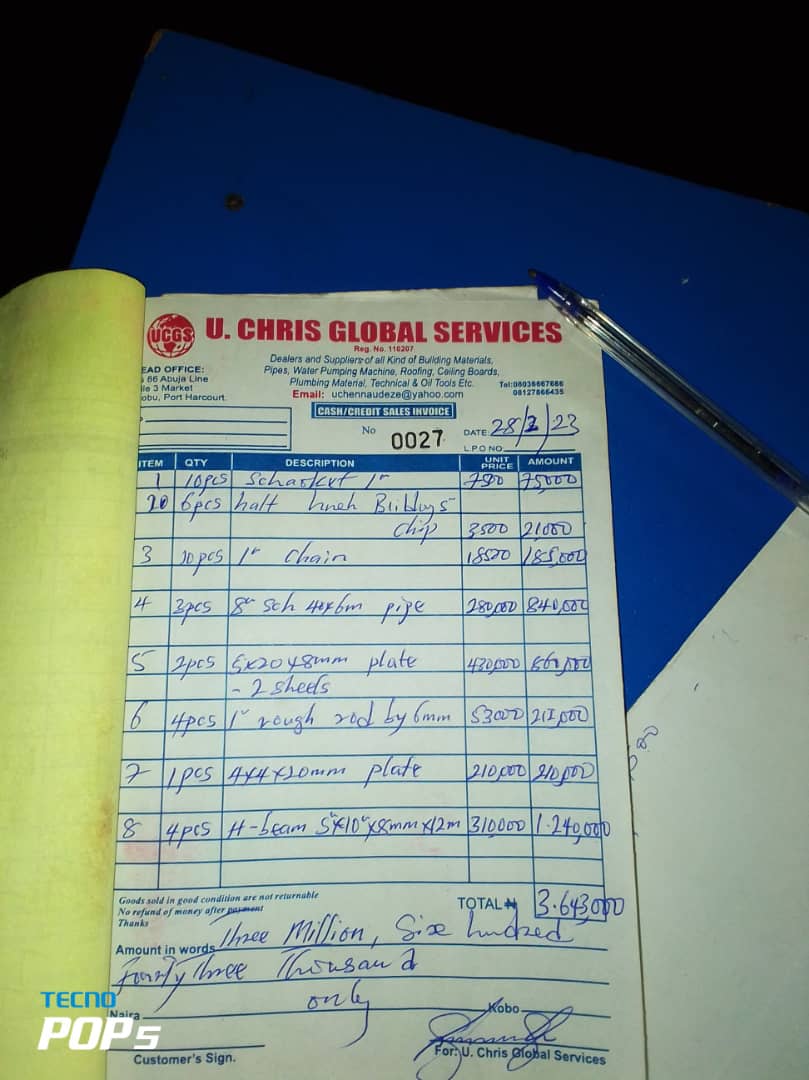 UCGS
U. CHRIS GLOBAL SERVICES
Reg. No. 116207
Dealers and Suppliers of all Kind of Building Materials,
Pipes, Water Pumping Machine, Roofing, Ceiling Boards,
Plumbing Material, Technical & Oil Tools Etc.
Tel:08036667686
08127866435
Email: uchennaudeze@yahoo.com
EAD OFFICE:
66 Abuja Line
ile 3 Market
obu, Port Harcourt.
CASH/CREDIT SALES INVOICE
No 0027
DATE 28/2/23
L.P.O NO
ITEM QTY DESCRIPTION UNIT PRICE AMOUNT
1 10pcs 1" 7500 75000
6pcs half chip 3500 21,000
3 10pcs 1" chain 18500 185,000
4 3pcs 8" sch 40x6m pipe 280,000 840,000
5 2pcs 5x20x8mm plate 430,000 860,000
- 2 sheets
6 4pcs 1" rough rod by 6mm 53000 212,000
7 1pcs 4x4x20mm plate 210,000 210,000
8 4pcs H-beam 5"x10"x8mm x12m 310,000 1.240,000
Goods sold in good condition are not returnable
No refund of money after payment
Thanks
TOTAL ₦ 3.643,000
Amount in words Three Million, Six hundred
Three Thousand
only
Naira Kobo
Customer's Sign.
For: U. Chris Global Services
TECNO
POP5